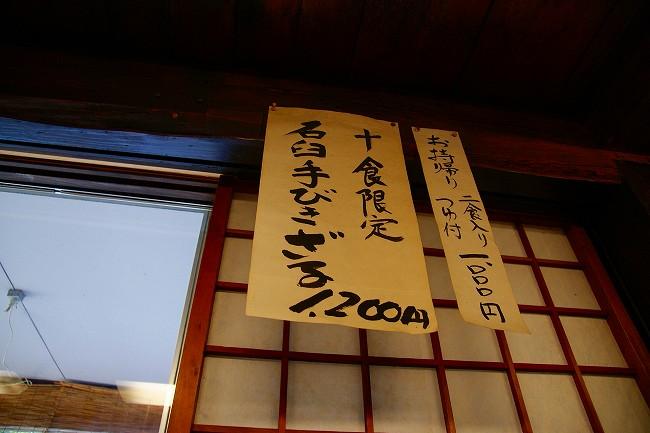 十食限定
石臼手びきざる
1,200円
お持帰り
二食入り
つゆ付
一、〇〇〇円